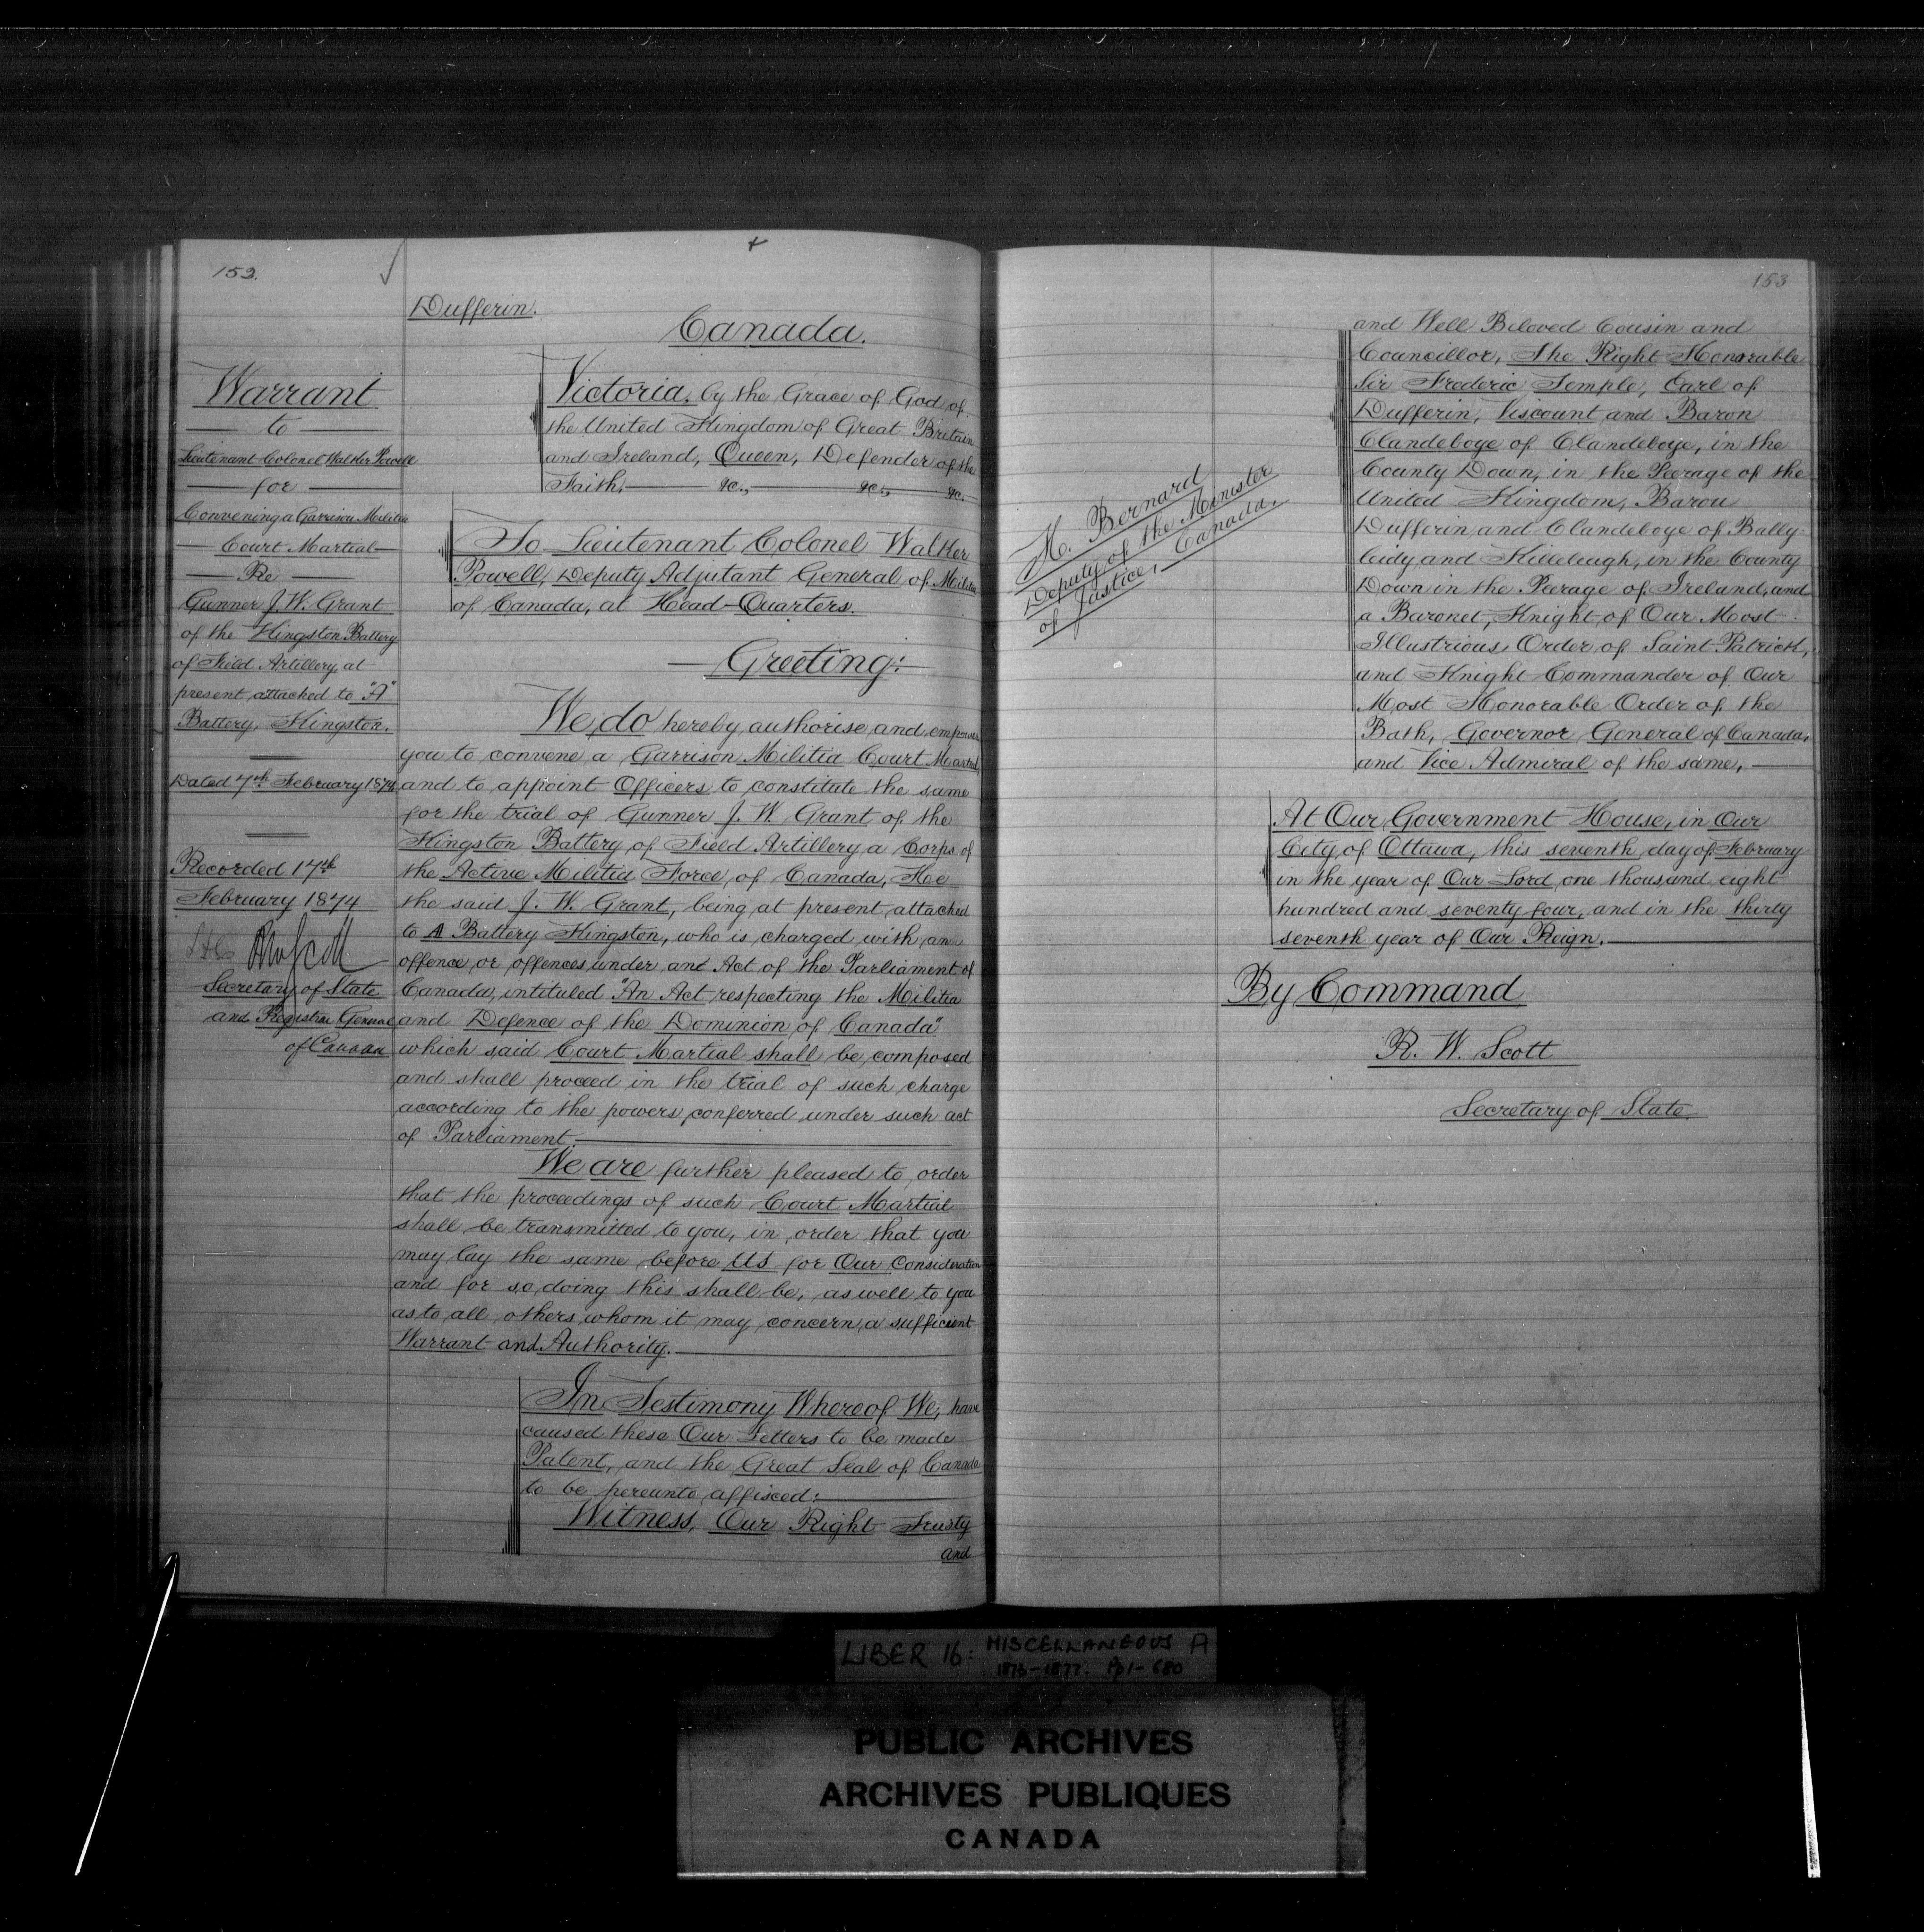 152.
Warrant
to
Lieutenant Colonel Walker Powell
for
Convening a Garrison Militia
Court Martial
Re
Gunner J. W. Grant
of the Kingston Battery
of Field Artillery, at
present attached to "A"
Battery, Kingston.
Dated 7th February 1874
Recorded 17th
February 1874
Secretary of State
and Registrar General
of Canada
Dufferin.
Canada.
Victoria, by the Grace of God of
the United Kingdom of Great Britain
and Ireland, Queen, Defender of the
Faith, &c., &c., &c.
To Lieutenant Colonel Walker
Powell, Deputy Adjutant General of Militia
of Canada, at Head-Quarters.
Greeting:
We do hereby authorise and empower
you to convene a Garrison Militia Court Martial,
and to appoint Officers to constitute the same
for the trial of Gunner J. W. Grant of the
Kingston Battery of Field Artillery a Corps of
the Active Militia Force, of Canada, He
the said J. W. Grant, being at present attached
to A Battery Kingston, who is charged with an
offence or offences under an Act of the Parliament of
Canada, intituled "An Act respecting the Militia
and Defence of the Dominion of Canada"
which said Court Martial shall be composed
and shall proceed in the trial of such charge
according to the powers conferred under such act
of Parliament.
We are further pleased to order
that the proceedings of such Court Martial
shall be transmitted to you, in order that you
may lay the same before Us for Our Consideration
and for so doing this shall be, as well to you
as to all others whom it may concern, a sufficient
Warrant and Authority.
In Testimony Whereof We, have
caused these Our Letters to be made
Patent, and the Great Seal of Canada
to be hereunto affixed:
Witness, Our Right Trusty
and
153
M. Bernard
Deputy of the Minister
of Justice, Canada.
and Well Beloved Cousin and
Councillor, The Right Honorable
Sir Frederic Temple, Earl of
Dufferin, Viscount and Baron
Clandeboye of Clandeboye, in the
County Down, in the Peerage of the
United Kingdom, Baron
Dufferin and Clandeboye of Bally-
leidy and Killeleagh, in the County
Down in the Peerage of Ireland, and
a Baronet, Knight of Our Most
Illustrious Order of Saint Patrick,
and Knight Commander of Our
Most Honorable Order of the
Bath, Governor General of Canada,
and Vice Admiral of the same,
At Our Government House, in Our
City of Ottawa, this seventh day of February
in the year of Our Lord one thousand eight
hundred and seventy four, and in the thirty
seventh year of Our Reign.
By Command
R. W. Scott
Secretary of State.
LIBER 16: MISCELLANEOUS A
1873-1877. Pp 1-680
PUBLIC ARCHIVES
ARCHIVES PUBLIQUES
CANADA